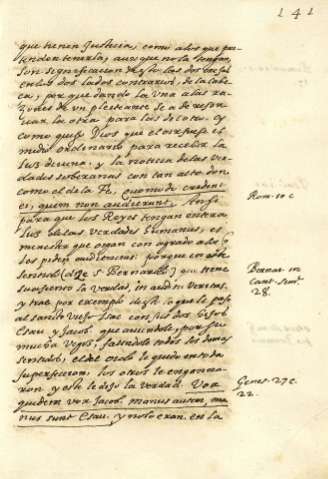 141
que tienen Justicia, como a los que pre
tenden tenerla, aunque no la tengan,
son significacion de esto los dos oydos
en los dos lados contrarios, de la cabe
ça, por que dando la una a las ra
zones de un pleiteante se a de reser
uar la otra para las de otro. Y
como quiso Dios que el oyr fuese el
medio ordinario para recebir la
luz divina. y la noticia de las ver
dades soberanas con tan alto don
como el de la Fe, quomodo credent
ei, quem non audierunt. Ansi
para que los Reyes tengan entera
luz de las verdades humanas, es
menester que oygan con agrado a los
les piden audiencias: porque en este
sentido (dize S. Bernardo) que tiene
su asiento la verdad, in auditu veritas.
y trae por exemplo de esto lo que le paso
al santo viejo Isac con sus dos hijos
Esau y Jacob. que auiendole, por ser
mui viejo, faltandole todos los demas
sentidos, el del oydo le quedo en toda
su perfeccion, los otros le engaña
ron y este le dejo la verdad. Vox
quidem vox Jacob. manus autem, ma
nus sunt Esau. y no lo eran. en la
Rom. 10 c
Bernar. in
Cant. serm.
28.
Genes. 27 c.
22.